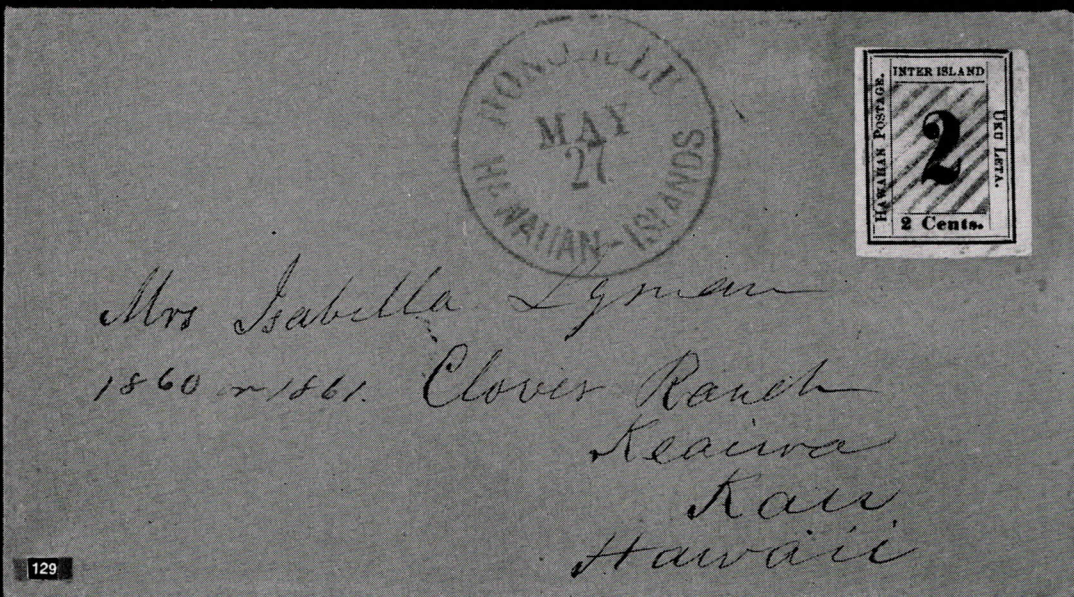 HONOLULU
MAY
27
HAWAIIAN-ISLANDS
HAWAIIAN POSTAGE.
INTER ISLAND
UKU LETA.
2
2 Cents.
Mrs Isabella Lyman
1860 or 1861. Clover Ranch
Keaiwa
Kau
Hawaii
129